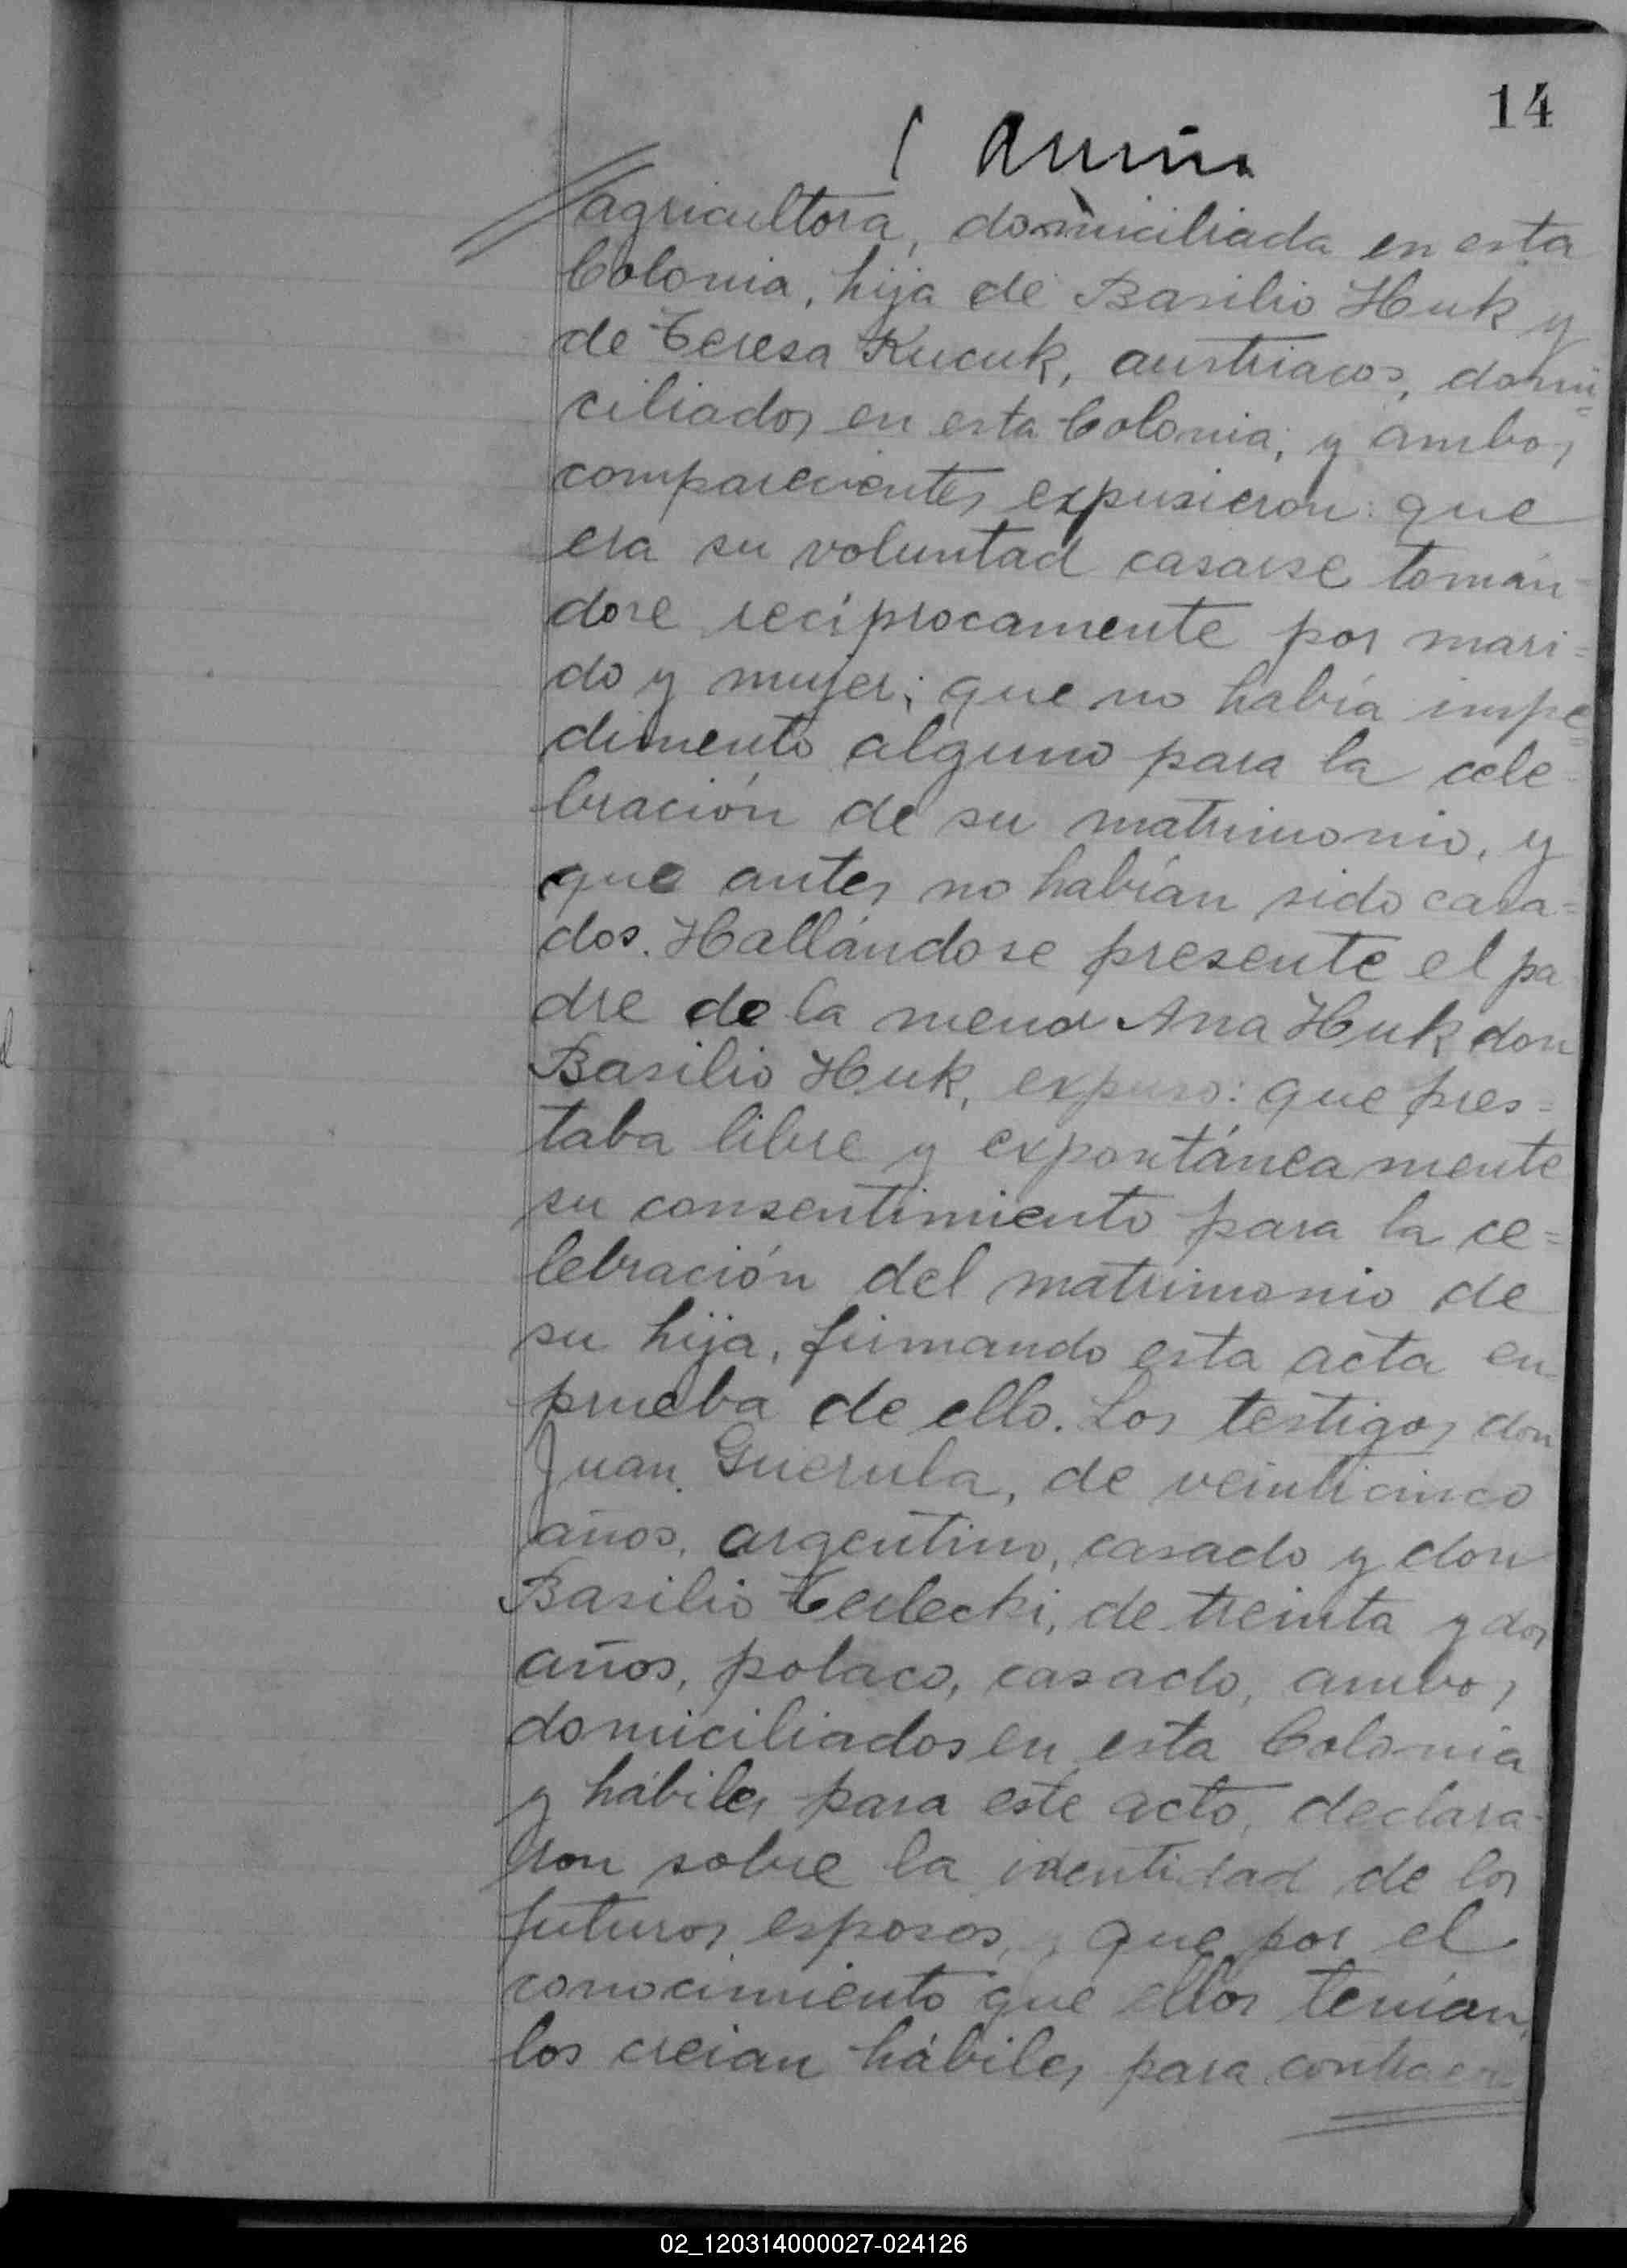 14
agricultora, domiciliada en esta
Colonia, hija de Basilio Huk y
de Teresa Kucuk, austriacos, domi=
ciliados en esta Colonia; y ambos
comparecientes expusieron: que
era su voluntad casarse tomán-
dose recíprocamente por mari=
do y mujer; que no había impe=
dimento alguno para la cele-
bración de su matrimonio, y
que antes no habían sido casa=
dos. Hallándose presente el pa
dre de la menor Ana Huk don
Basilio Huk, expuso: que pres=
taba libre y expontáneamente
su consentimiento para la ce=
lebración del matrimonio de
su hija, firmando esta acta en
prueba de ello. Los testigos don
Juan Guerula, de veinticinco
años, argentino, casado y don
Basilio Terlecki, de treinta y dos
años, polaco, casado, ambos
domiciliados en esta Colonia
y hábiles para este acto, declara-
ron sobre la identidad de los
futuros esposos, que por el
conocimiento que ellos tenían,
los creian hábiles para contraer
02_120314000027-024126